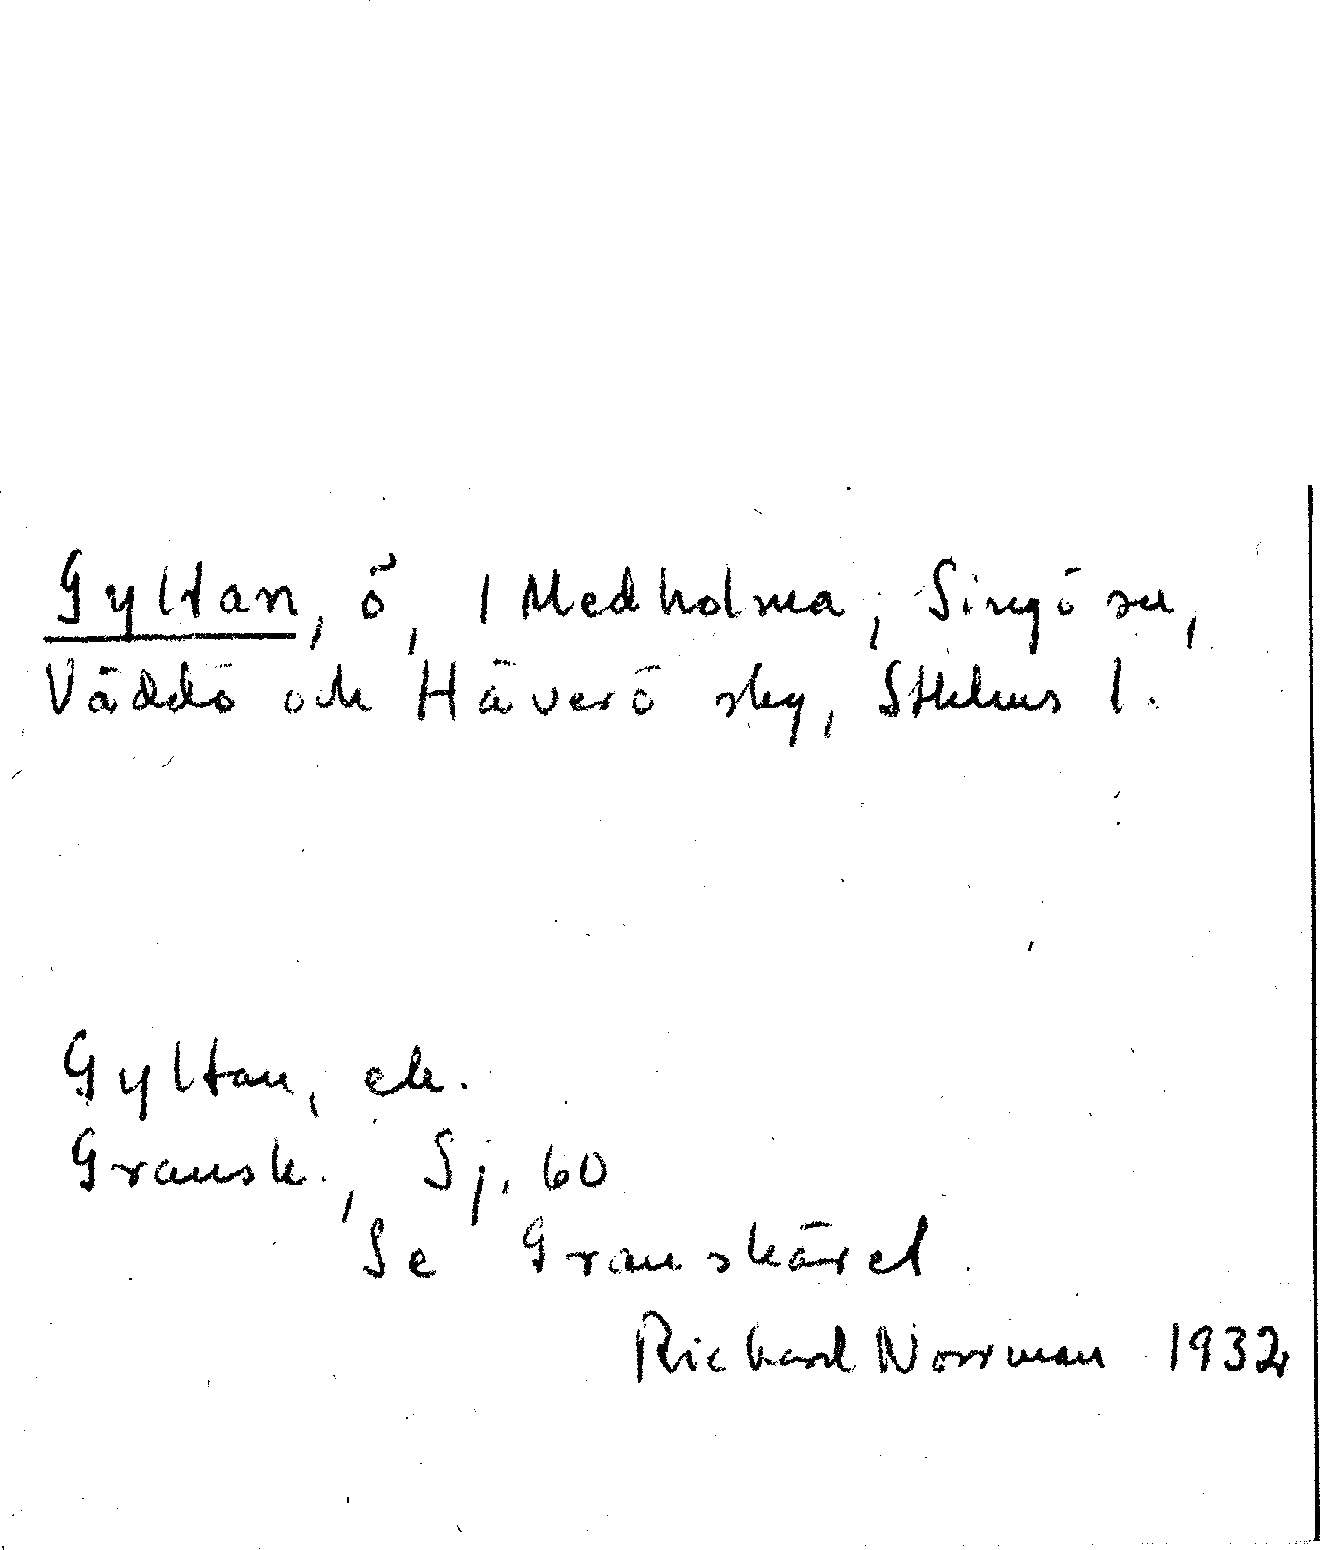 Gyltan, ö, 1 Medholma, Singö sn,
Väddö och Häverö skg, Sthlms l.
Gyltan, ek.
Gransk., Sj. 60
Se Granskäret
Richard Norrman 1932